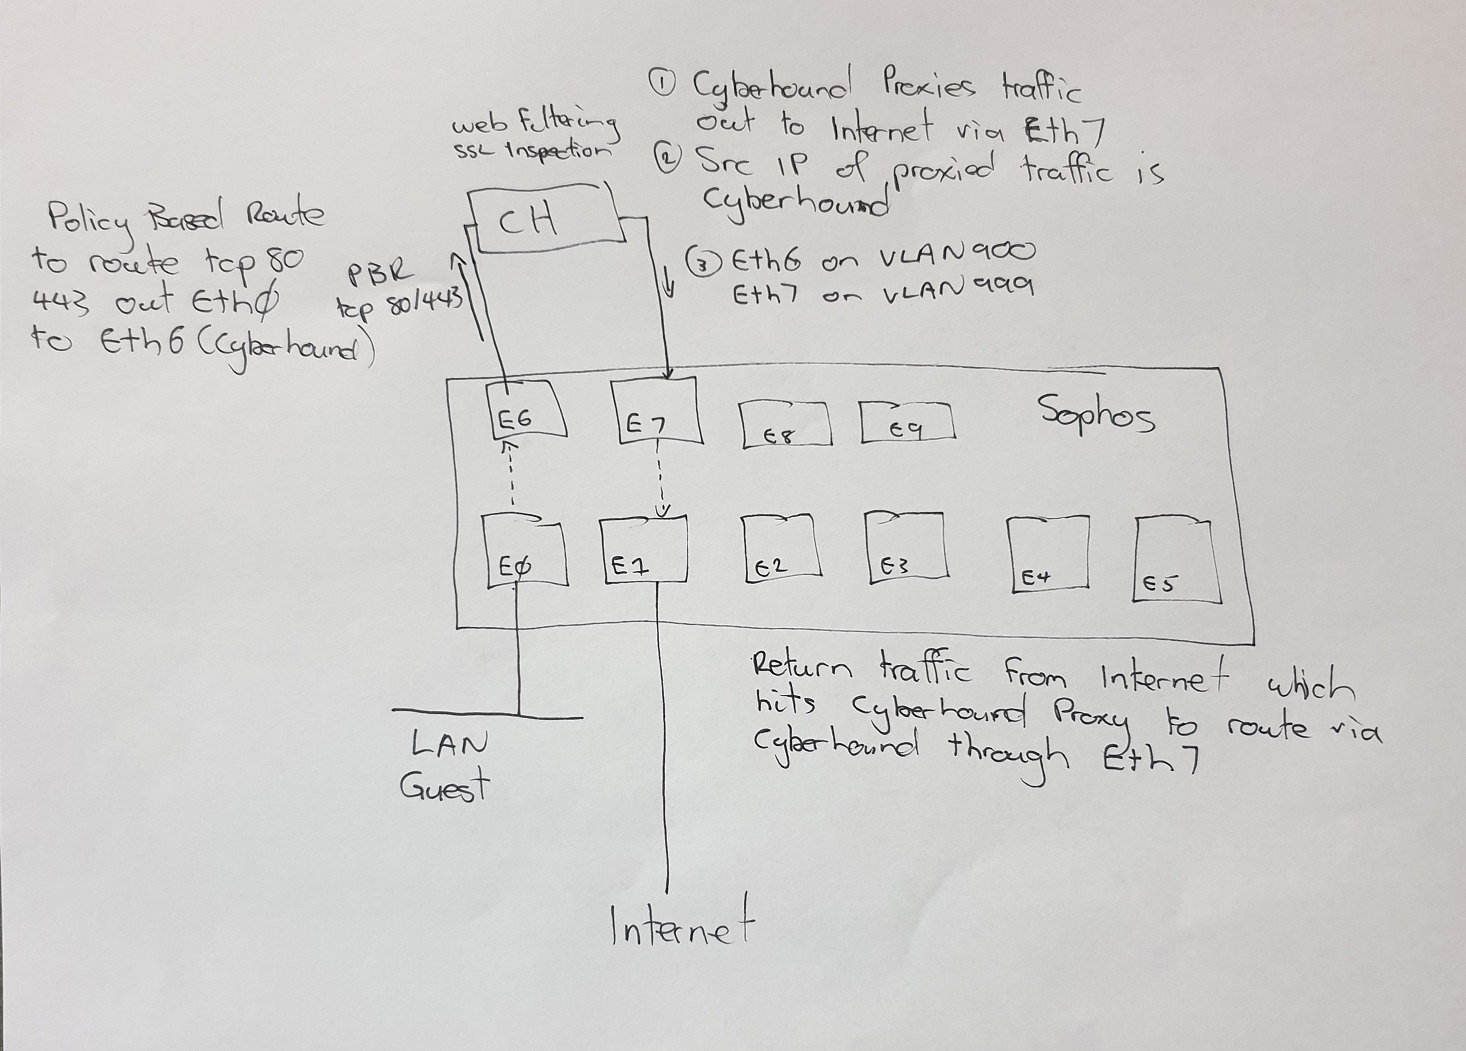 ① Cyberhound Proxies traffic
out to Internet via Eth7
② Src IP of proxied traffic is
Cyberhound
③ Eth6 on VLAN900
Eth7 on VLAN999
web Filtering
SSL Inspection
CH
Policy Based Route
to route tcp 80
443 out Ethφ
to Eth6 (Cyberhound)
PBR
tcp 80/443
Sophos
E6
E7
E8
E9
Eφ
E1
E2
E3
E4
E5
Return traffic from Internet which
hits Cyberhound Proxy to route via
Cyberhound through Eth7
LAN
Guest
Internet